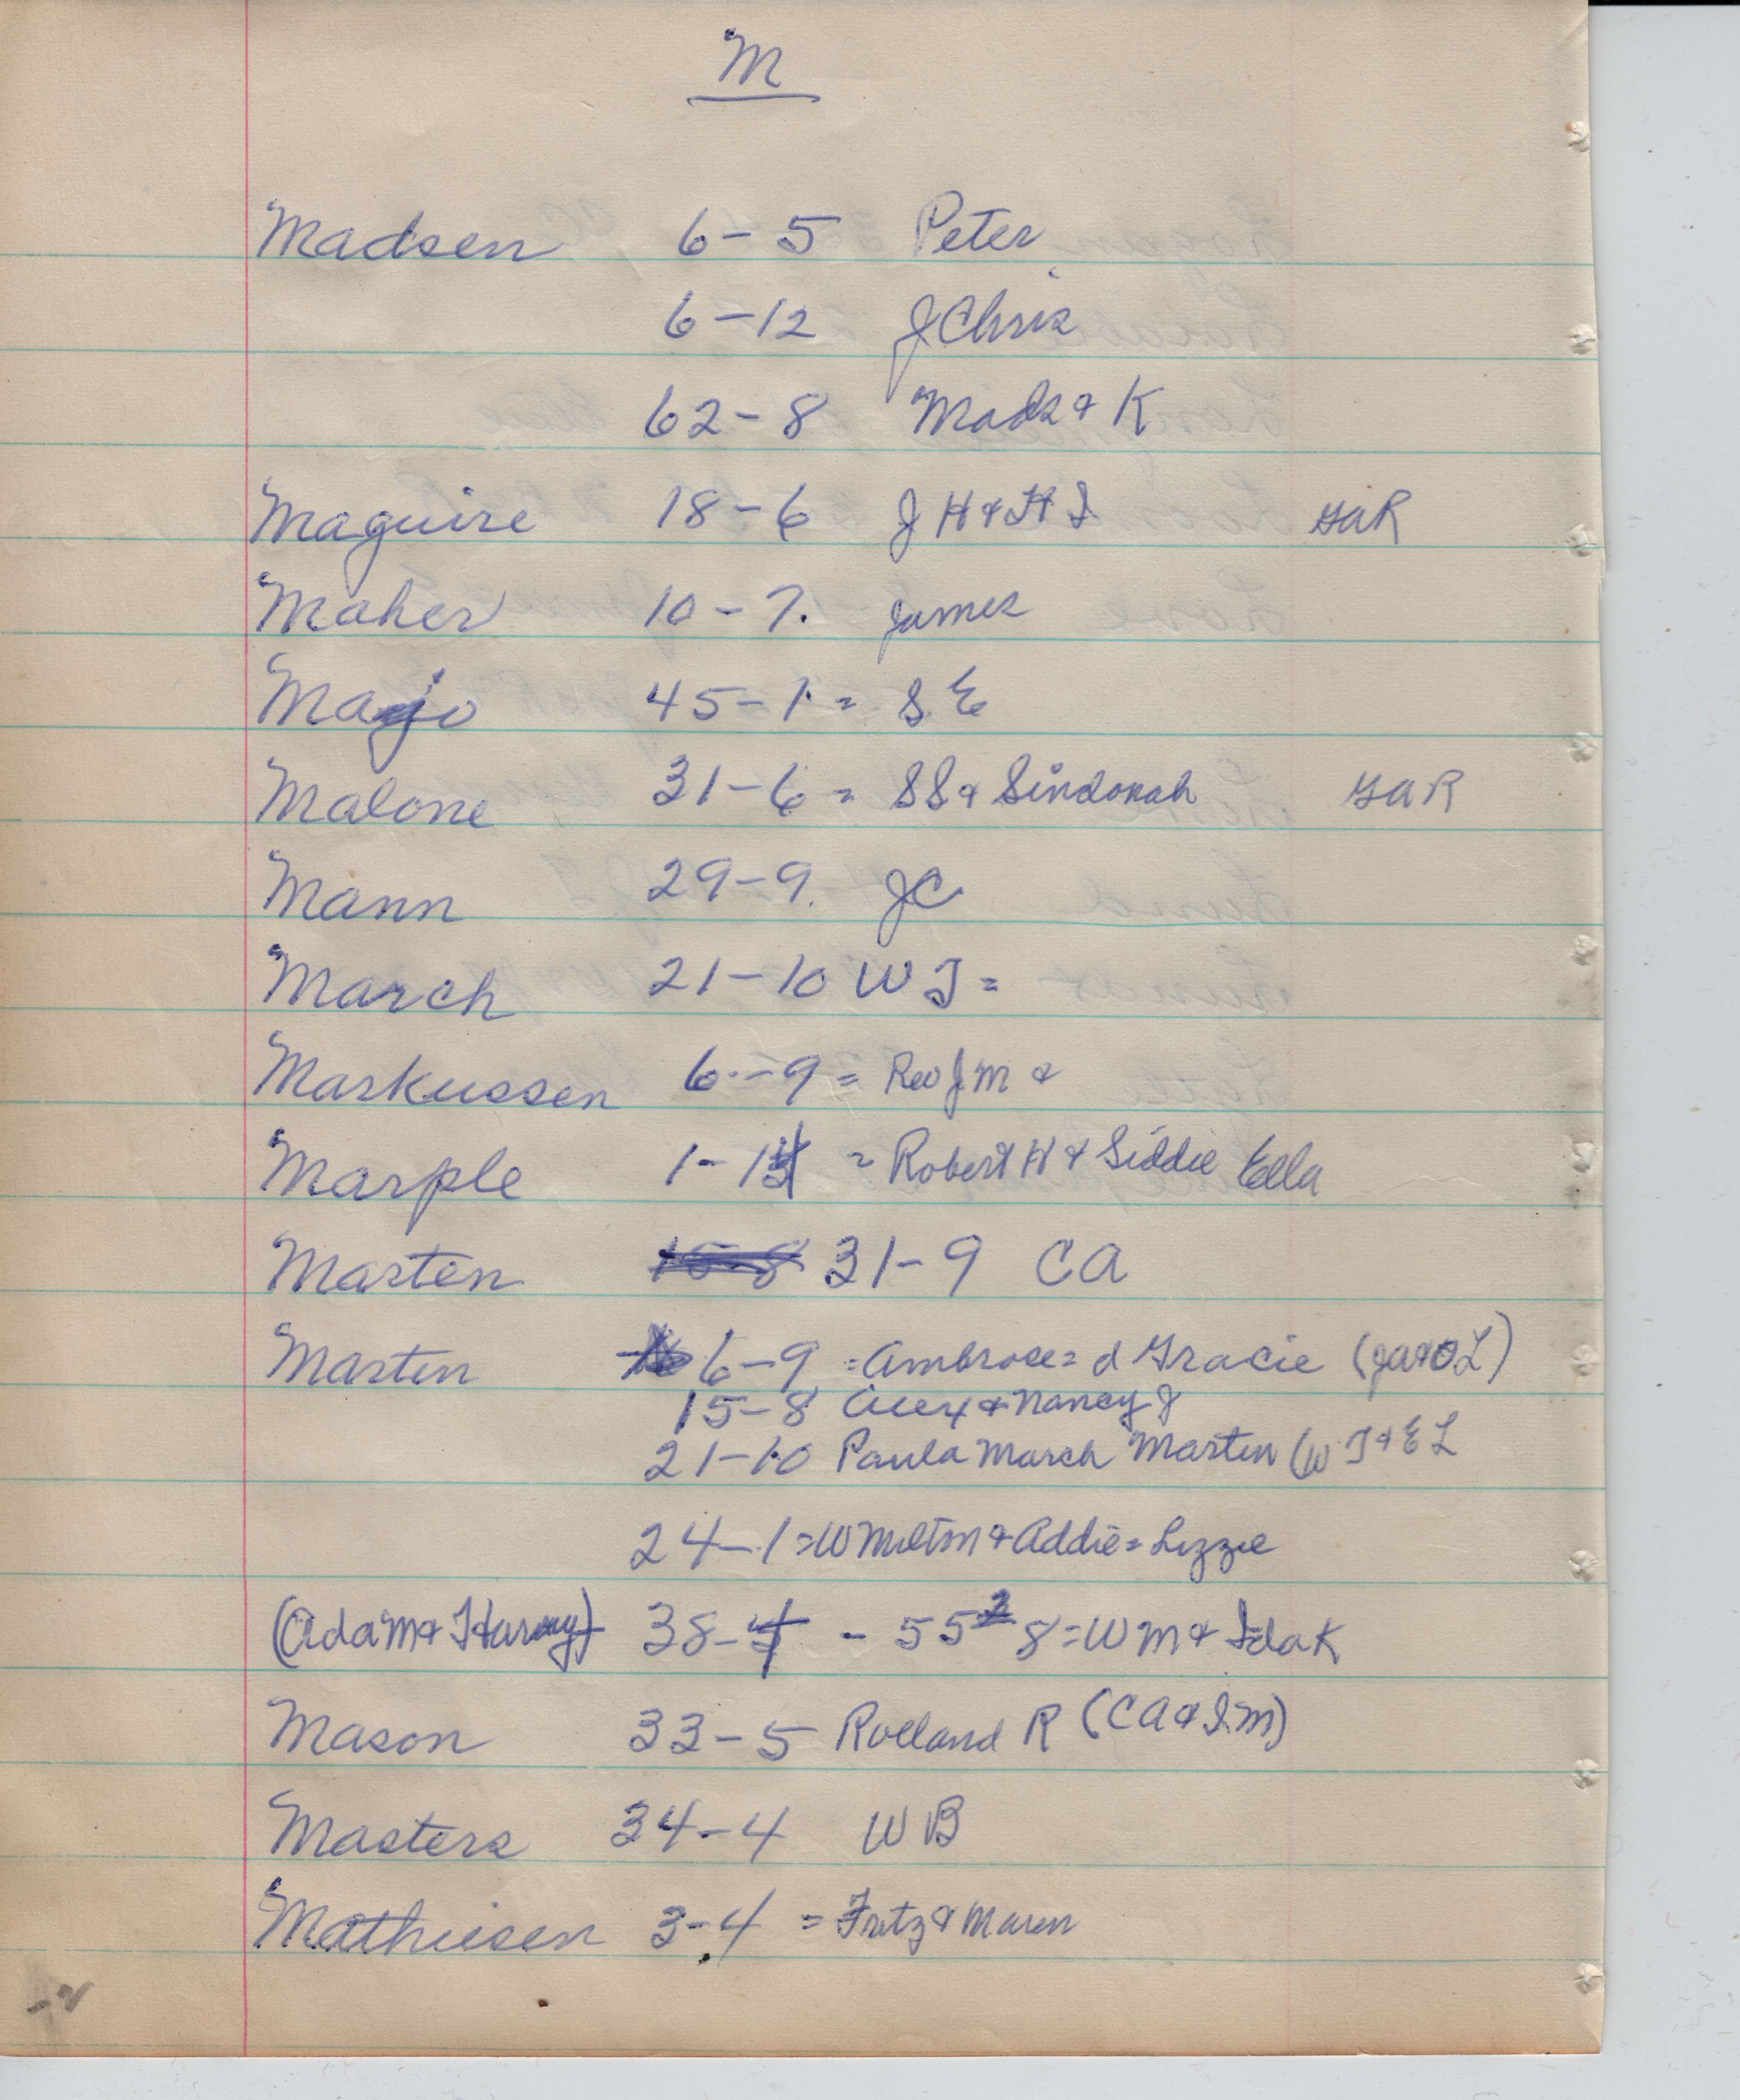 M
Madsen 6-5 Peter
6-12 J Chris
62-8 Mads & K
Maguire 18-6 J H & H I GAR
Maher 10-7. James
Majo 45-1 = S E
Malone 31-6 = SS & Sindonah GAR
Mann 29-9. JC
March 21-10 W J =
Markussen 6-9 = Rev J M &
Marple 1-1 = Robert H & Siddie Ella
Marten 31-9 CA
Marten 6-9 = Ambrose = d Gracie (JA & OL)
15-8 Alex & Nancy J
21-10 Paula March Marten (W J & E L
24-1 = W Milton & Addie = Lizzie
(Adam & Harvey) 38-4 - 55 8 = W M & Ida K
Mason 33-5 Rolland R (CA & I.M)
Masters 34-4 WB
Mathiesen 3-4 = Fritz & Maren